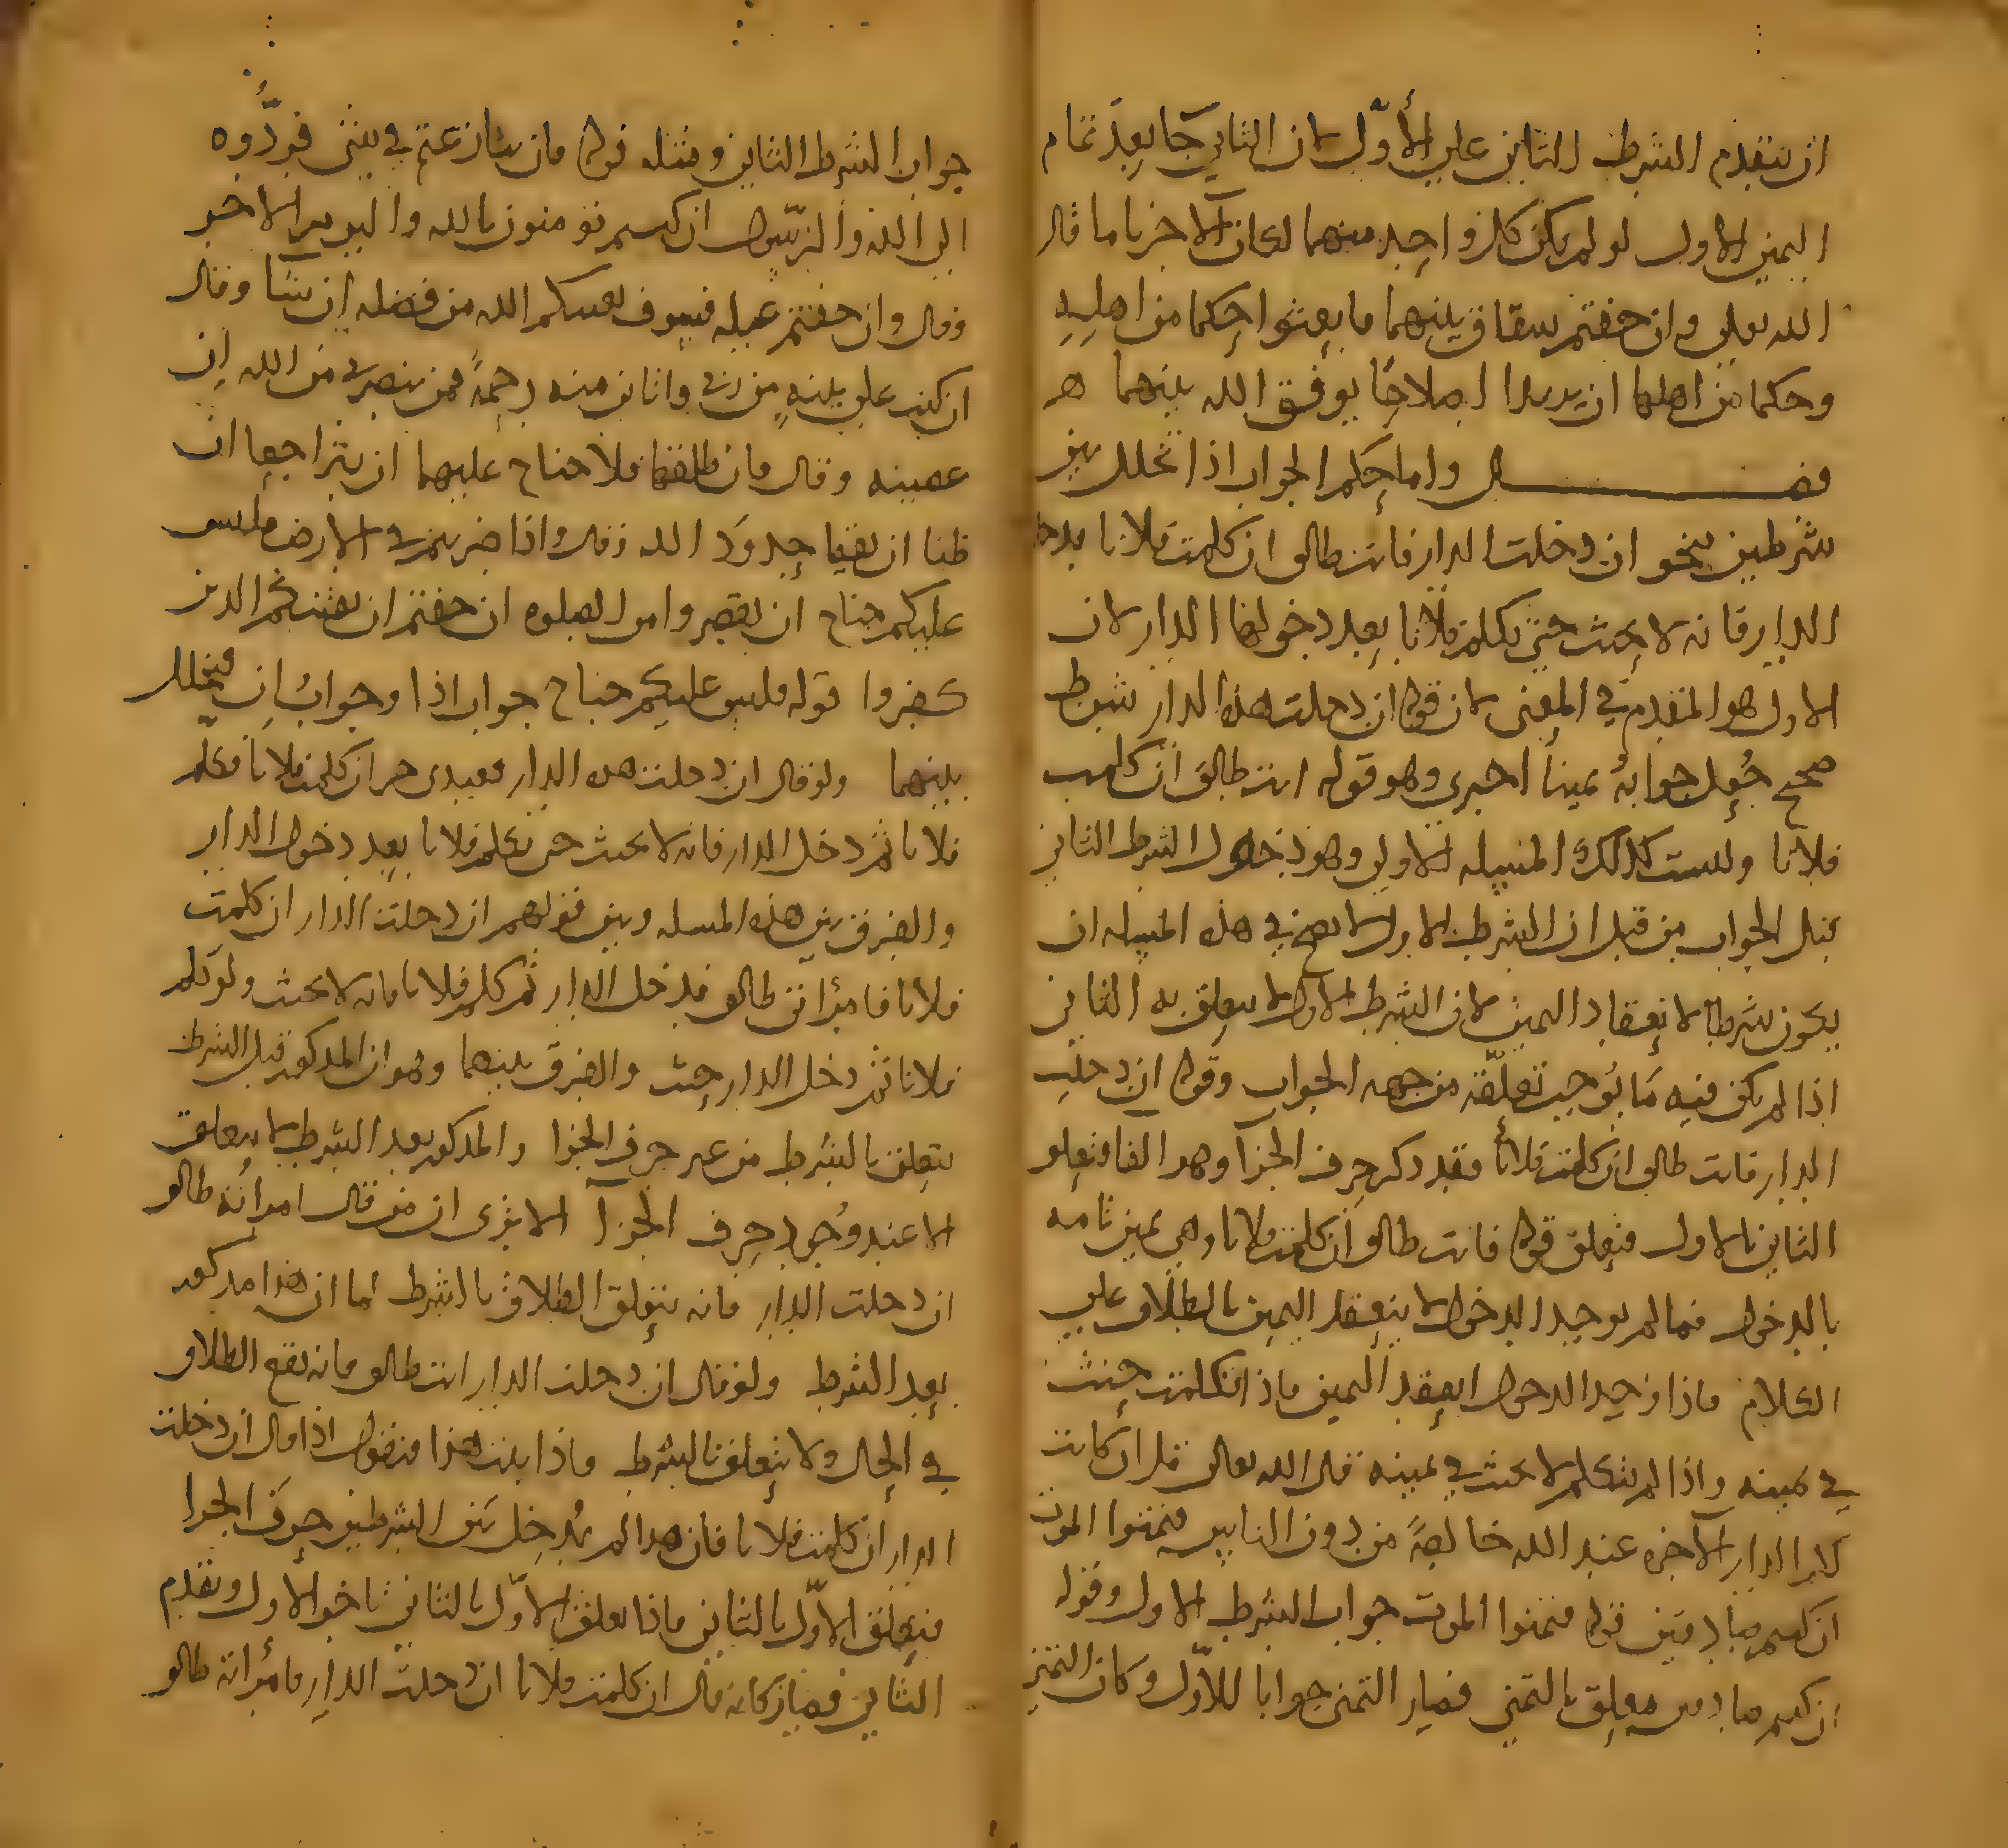 ان يتقدم الشرط الثاني على الأول لان الثاني جا بعد تمام
اليمين الاول لو لم يكن كل واحد منهما لكان الاخر تاما قال
الله تعلى وان خفتم شقاق بينهما فابعثوا حكما من اهله
وحكما من اهلها ان يريدا اصلاحا يوفق الله بينهما
فصل واما حكم الجواب اذا تخلل بين
شرطين نحو ان دخلت الدار فانت طالق ان كلمت فلانا فدخل
الدار فانه لا يحنث حتى تكلم فلانا بعد دخولها الدار لان
الاول هو المتقدم في المعنى لان قوله ان دخلت هذه الدار شرط
صحيح جعل جوابه يمينا اخرى وهو قوله انت طالق ان كلمت
فلانا وليست كذلك المسله الاولى وهو دخول الشرط الثاني
قبل الجواب من قبل ان الشرط الاول لا يصح في هذه المسله ان
يكون شرطا لانعقاد اليمين لان الشرط الاول لا يتعلق به الثاني
اذا لم يكن فيه ما يوجب تعلقه من جهه الجواب وقوله ان دخلت
الدار فانت طالق ان كلمت فلانا فقد ذكر حرف الجزآ وهو الفا فتعلق
الثاني بالاول فتعلق قوله فانت طالق ان كلمت فلانا وهي يمين تامه
بالدخول فما لم يوجد الدخول لا ينعقد اليمين بالطلاق على
الكلام فاذا وجد الدخول انعقد اليمين فاذا تكلمت حنث
في يمينه واذا لم تتكلم لا يحنث في يمينه قال الله تعالى قل ان كانت
لكم الدار الآخره عند الله خالصة من دون الناس فتمنوا الموت
ان كنتم صادقين قوله فتمنوا الموت جواب الشرط الاول وقوله
ان كنتم صادقين معلق بالتمني فصار التمني جوابا للاول وكان التمني
جواب الشرط الثاني ومثله قوله فان تنازعتم في شئ فردوه
الى الله والرسول ان كنتم تؤمنون بالله واليوم الاخر
وقال وان خفتم عيله فسوف يغنيكم الله من فضله ان شآ وقال
ان كنت على بينة من ربى وآتانى منه رحمة فمن ينصرنى من الله ان
عصيته وقال فان طلقها فلا جناح عليهما ان يتراجعا ان
ظنا ان يقيما حدود الله وقال واذا ضربتم في الارض فليس
عليكم جناح ان تقصروا من الصلوه ان خفتم ان يفتنكم الذين
كفروا قوله فليس عليكم جناح جواب اذا وجواب ان فتخلل
بينهما ولو قال ان دخلت هذه الدار فعبدى حر ان كلمت فلانا فكلم
فلانا ثم دخل الدار فانه لا يحنث حتى يكلم فلانا بعد دخول الدار
والفرق بين هذه المسله وبين قولهم ان دخلت الدار ان كلمت
فلانا فامرأتى طالق فدخل الدار ثم كلم فلانا فانه لا يحنث ولو كلم
فلانا ثم دخل الدار حنث والفرق بينهما وهو ان المذكور قبل الشرط
يتعلق بالشرط من غير حرف الجزا والمذكور بعد الشرط لا يتعلق
الا عند وجود حرف الجزآ الا يرى ان من قال امرأته طالق
ان دخلت الدار فانه يتعلق الطلاق بالشرط اما ان هذا مذكور
بعد الشرط ولو قال ان دخلت الدار انت طالق فانه يقع الطلاق
في الحال ولا يتعلق بالشرط فاذا ثبت هذا فنقول اذا قال ان دخلت
الدار ان كلمت فلانا فان هذا لم يدخل بين الشرطين حرف الجزا
فيتعلق الاول بالثاني فاذا تعلق الاول بالثاني تاخر الاول وتقدم
الثاني فصار كانه قال ان كلمت فلانا ان دخلت الدار فامرأته طالق